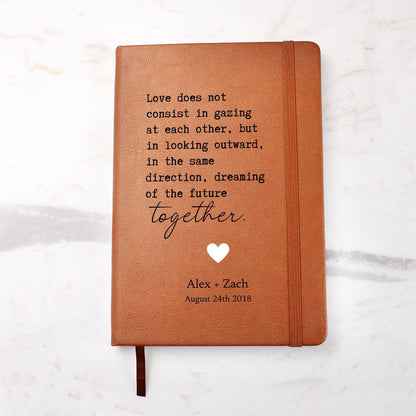 Love does not
consist in gazing
at each other, but
in looking outward,
in the same
direction, dreaming
of the future
together.
Alex + Zach
August 24th 2018